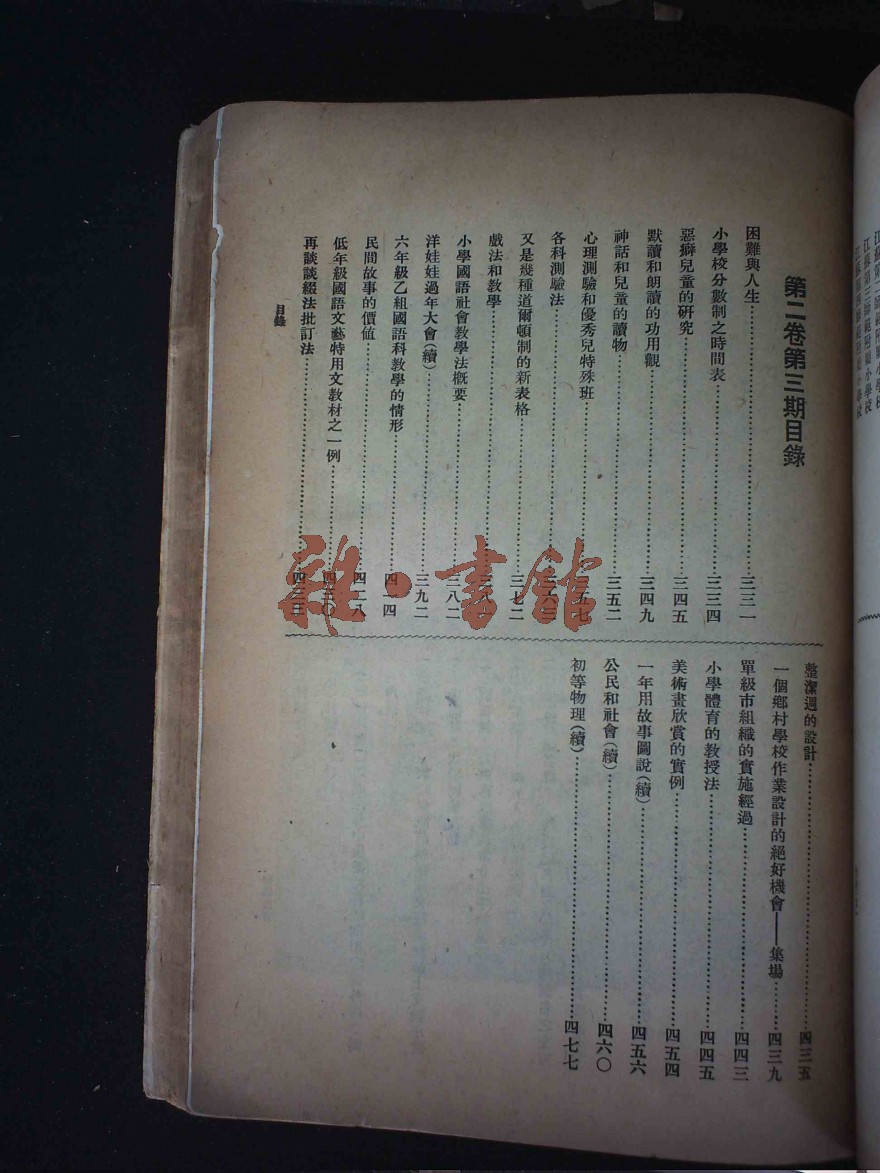 第二卷第三期目錄
困難與人生……三三一
小學校分數制之時間表……三三四
惡癖兒童的研究……三四五
默讀和朗讀的功用觀……三四九
神話和兒童的讀物……三五二
心理測驗和優秀兒特殊班……三五七
各科測驗法……三六三
又是幾種道爾頓制的新表格……三七二
戲法和教學……三八一
小學國語社會教學法概要……三八二
洋娃娃過年大會(續)……三九二
六年級乙組國語科教學的情形……四一四
民間故事的價値……四二八
低年級國語文藝特用文教材之一例……四三〇
再談談綴法批訂法……四三三
整潔週的設計……四三五
一個鄉村學校作業設計的絕好機會——集場……四三九
單級市組織的實施經過……四四三
小學體育的教授法……四四五
美術畫欣賞的實例……四五四
一年用故事圖說(續)……四五六
公民和社會(續)……四六〇
初等物理(續)……四七七
目錄
雜·書館